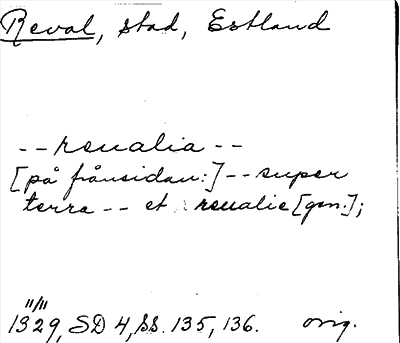 Reval, stad, Estland
-- reualia --
[på frånsidan:] -- super
terra -- et reualie [gen.];
11/11
1329, SD 4, ss. 135, 136. orig.